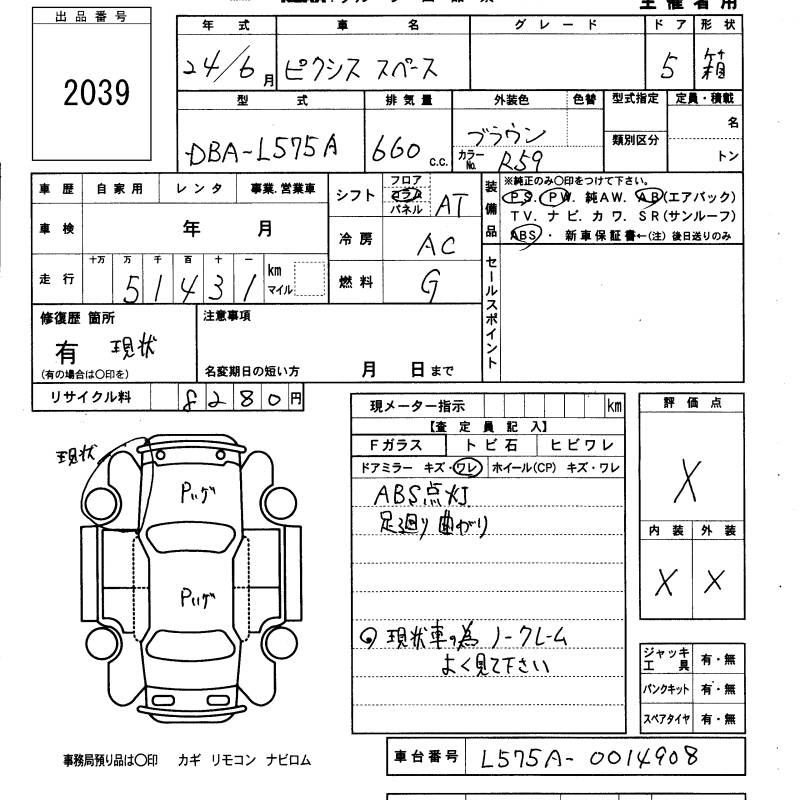 主催者用
出品番号
2039
年式 車名 グレード ドア 形状
24/6月 ピクシス スペース 5 箱
型式 排気量 外装色 色替 型式指定 定員・積載
DBA-L575A 660 c.c. ブラウン カラーNo. R59 類別区分 名 トン
車歴 自家用 レンタ 事業.営業車
車検 年 月
走行 十万 万 千 百 十 一
51431 km マイル
シフト フロア コラム パネル AT
冷房 AC
燃料 G
装備品 ※純正のみ〇印をつけて下さい。
PS. PW. 純AW. AB(エアバック)
TV. ナビ. カワ. SR(サンルーフ)
ABS ・ 新車保証書←(注) 後日送りのみ
セールスポイント
修復歴 箇所
有 現状
(有の場合は〇印を)
注意事項
名変期日の短い方 月 日まで
リサイクル料 8280円
現メーター指示 km
【査定員記入】
Fガラス トビ石 ヒビワレ
ドアミラー キズ・ワレ ホイール(CP) キズ・ワレ
ABS点灯
足廻り曲がり
現状車の為 ノークレーム
よく見て下さい
評価点
X
内装 外装
X X
ジャッキ工具 有・無
パンクキット 有・無
スペアタイヤ 有・無
現状
事務局預り品は〇印 カギ リモコン ナビロム
車台番号 L575A-0014908